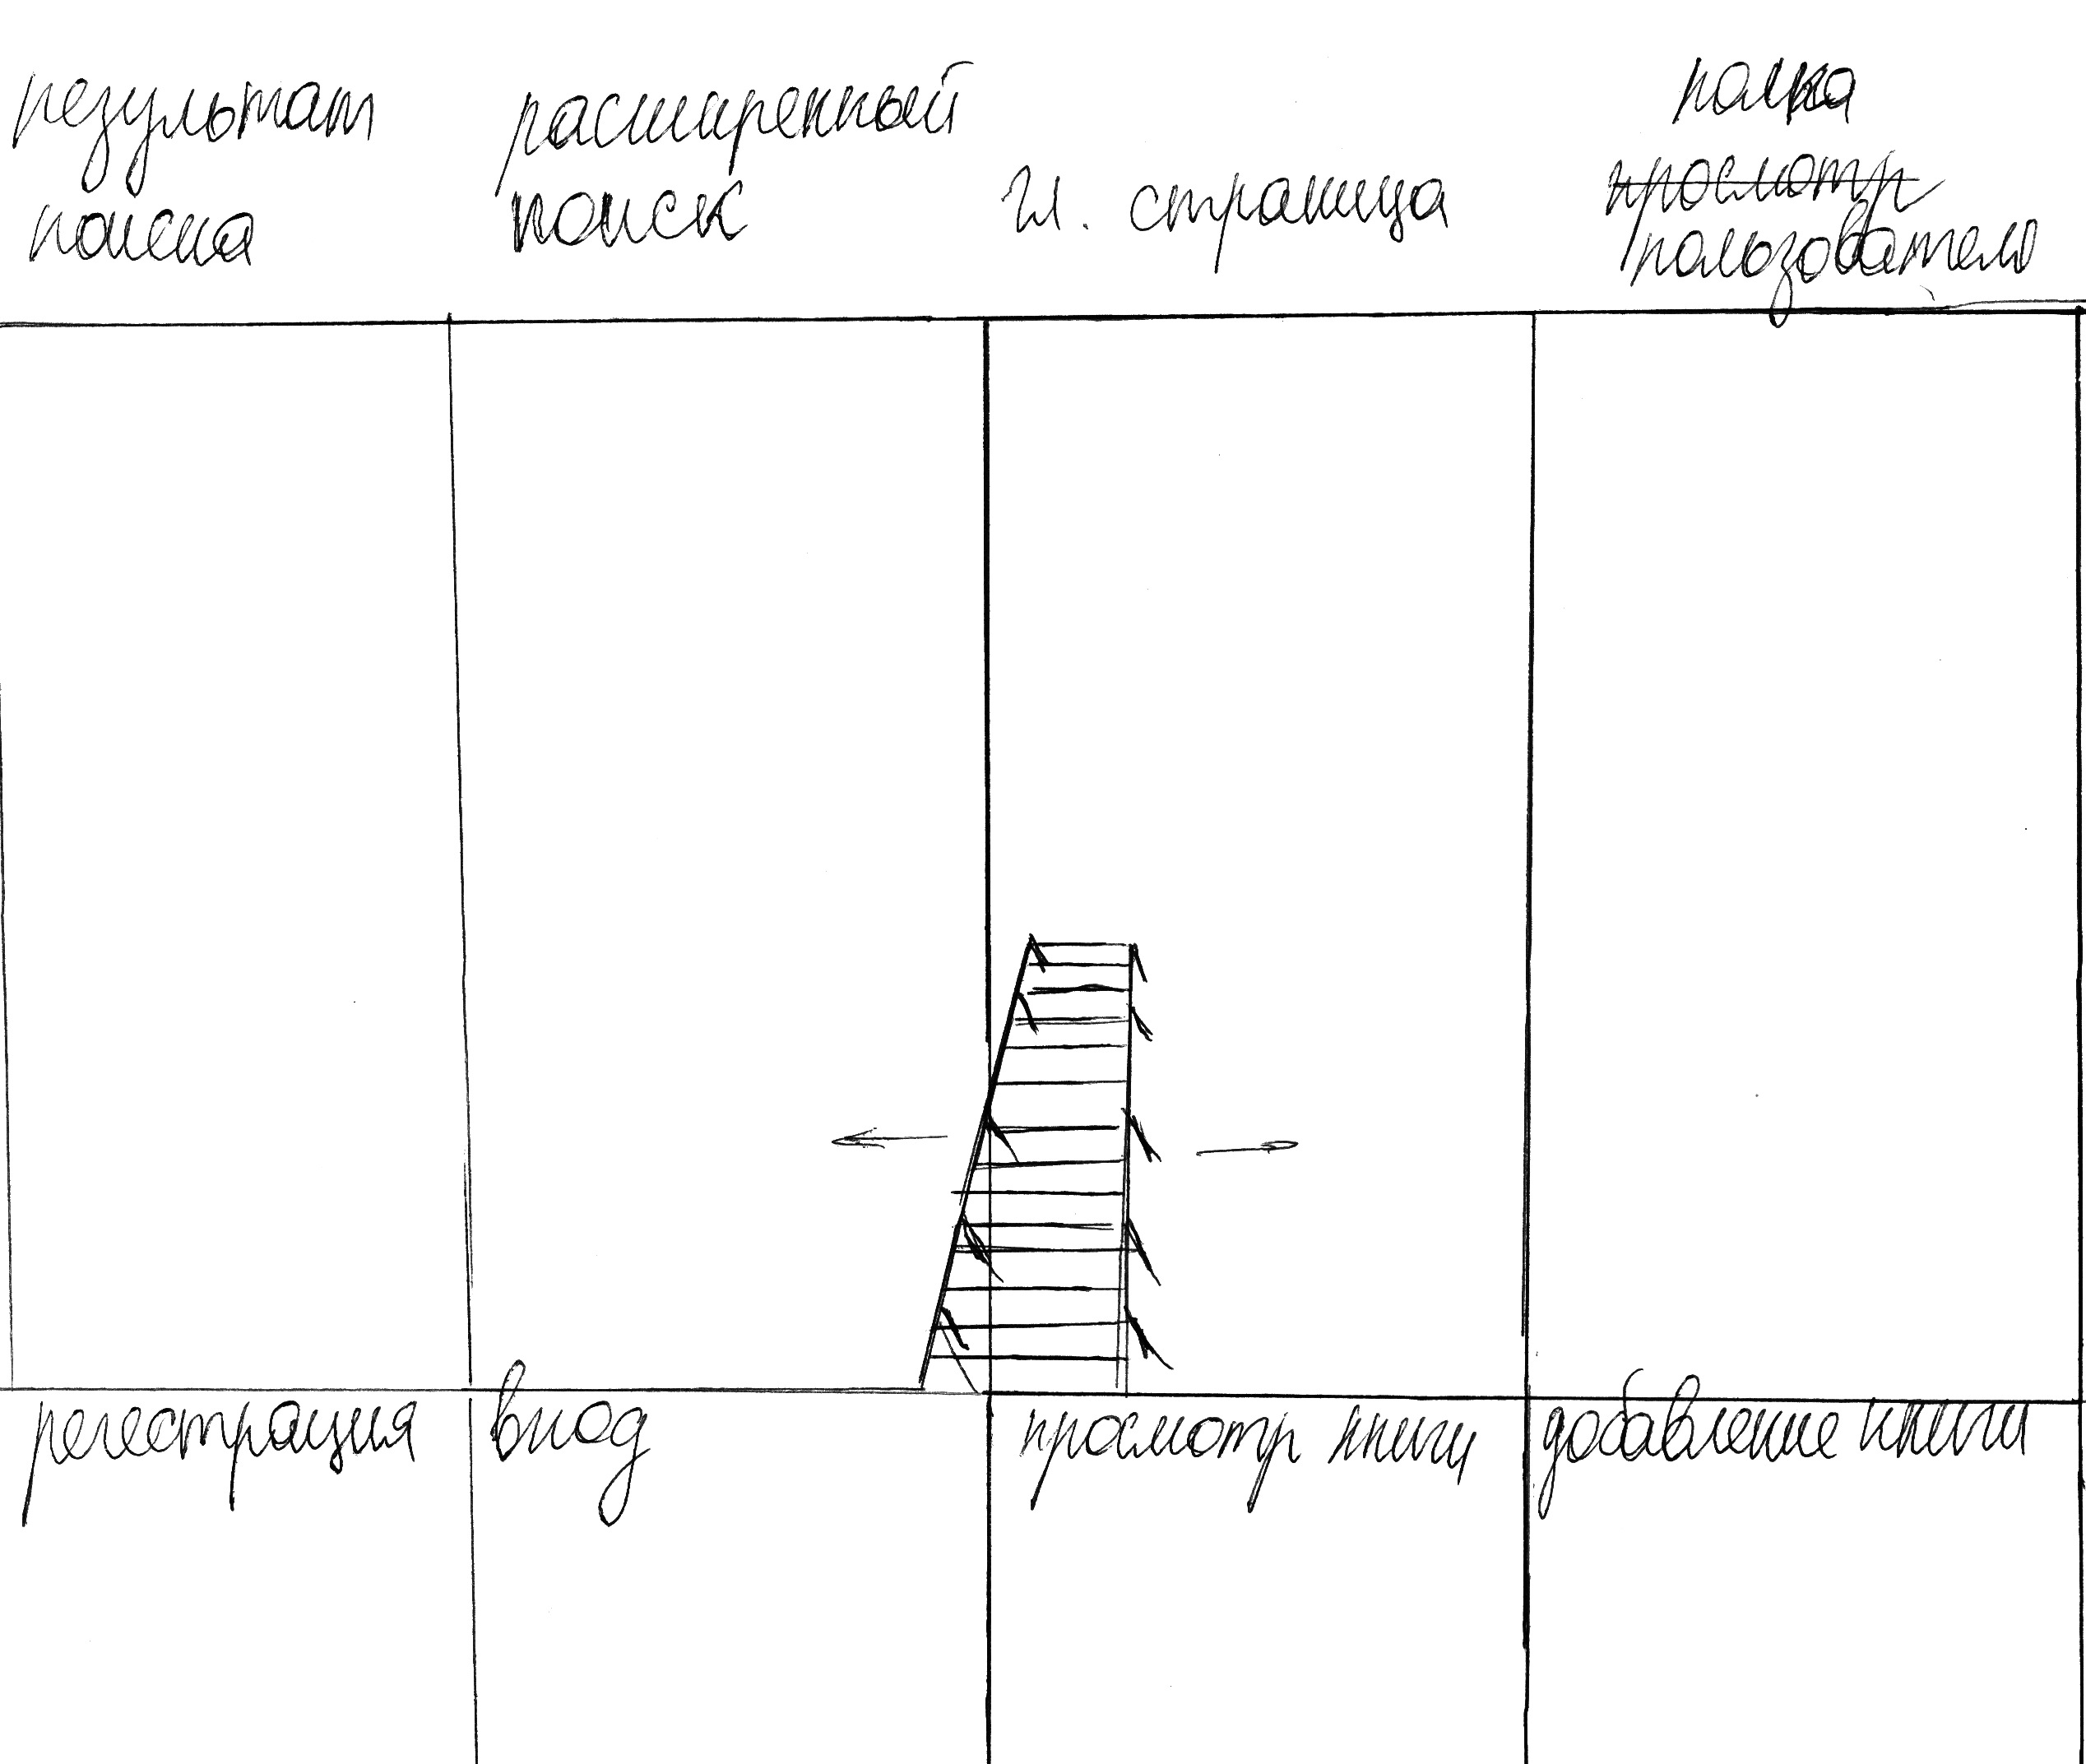 результат
поиска
расширенный
поиск
гл. страница
полка
просмотр
пользователю
регестрация
вход
просмотр книги
добавление книги